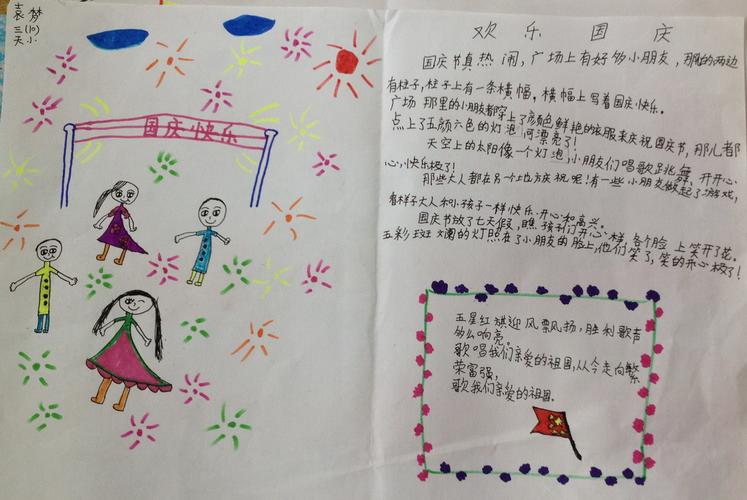 袁梦
三(10)
天小
国庆快乐
欢乐国庆
国庆节真热闹,广场上有好多小朋友,那儿的两边
有柱子,柱子上有一条横幅,横幅上写着国庆快乐。
广场那里的小朋友都穿上了颜色鲜艳的衣服来庆祝国庆节,那儿都
点上了五颜六色的灯泡何漂亮了!
天空上的太阳像一个灯泡,小朋友们唱歌跳舞,开开心
心,快乐极了!
那些大人都在另一个地方庆祝呢!有一些小朋友做起了游戏,
看样子大人和小孩子一样快乐.开心和高兴。
国庆节放了七天假,瞧孩子们开心样,各个脸上笑开了花。
五彩斑斓的灯照在了小朋友的脸上,他们笑了,笑的开心极了!
五星红旗迎风飘扬,胜利歌声
多么响亮。
歌唱我们亲爱的祖国,从今走向繁
荣富强,
歌我们亲爱的祖国.